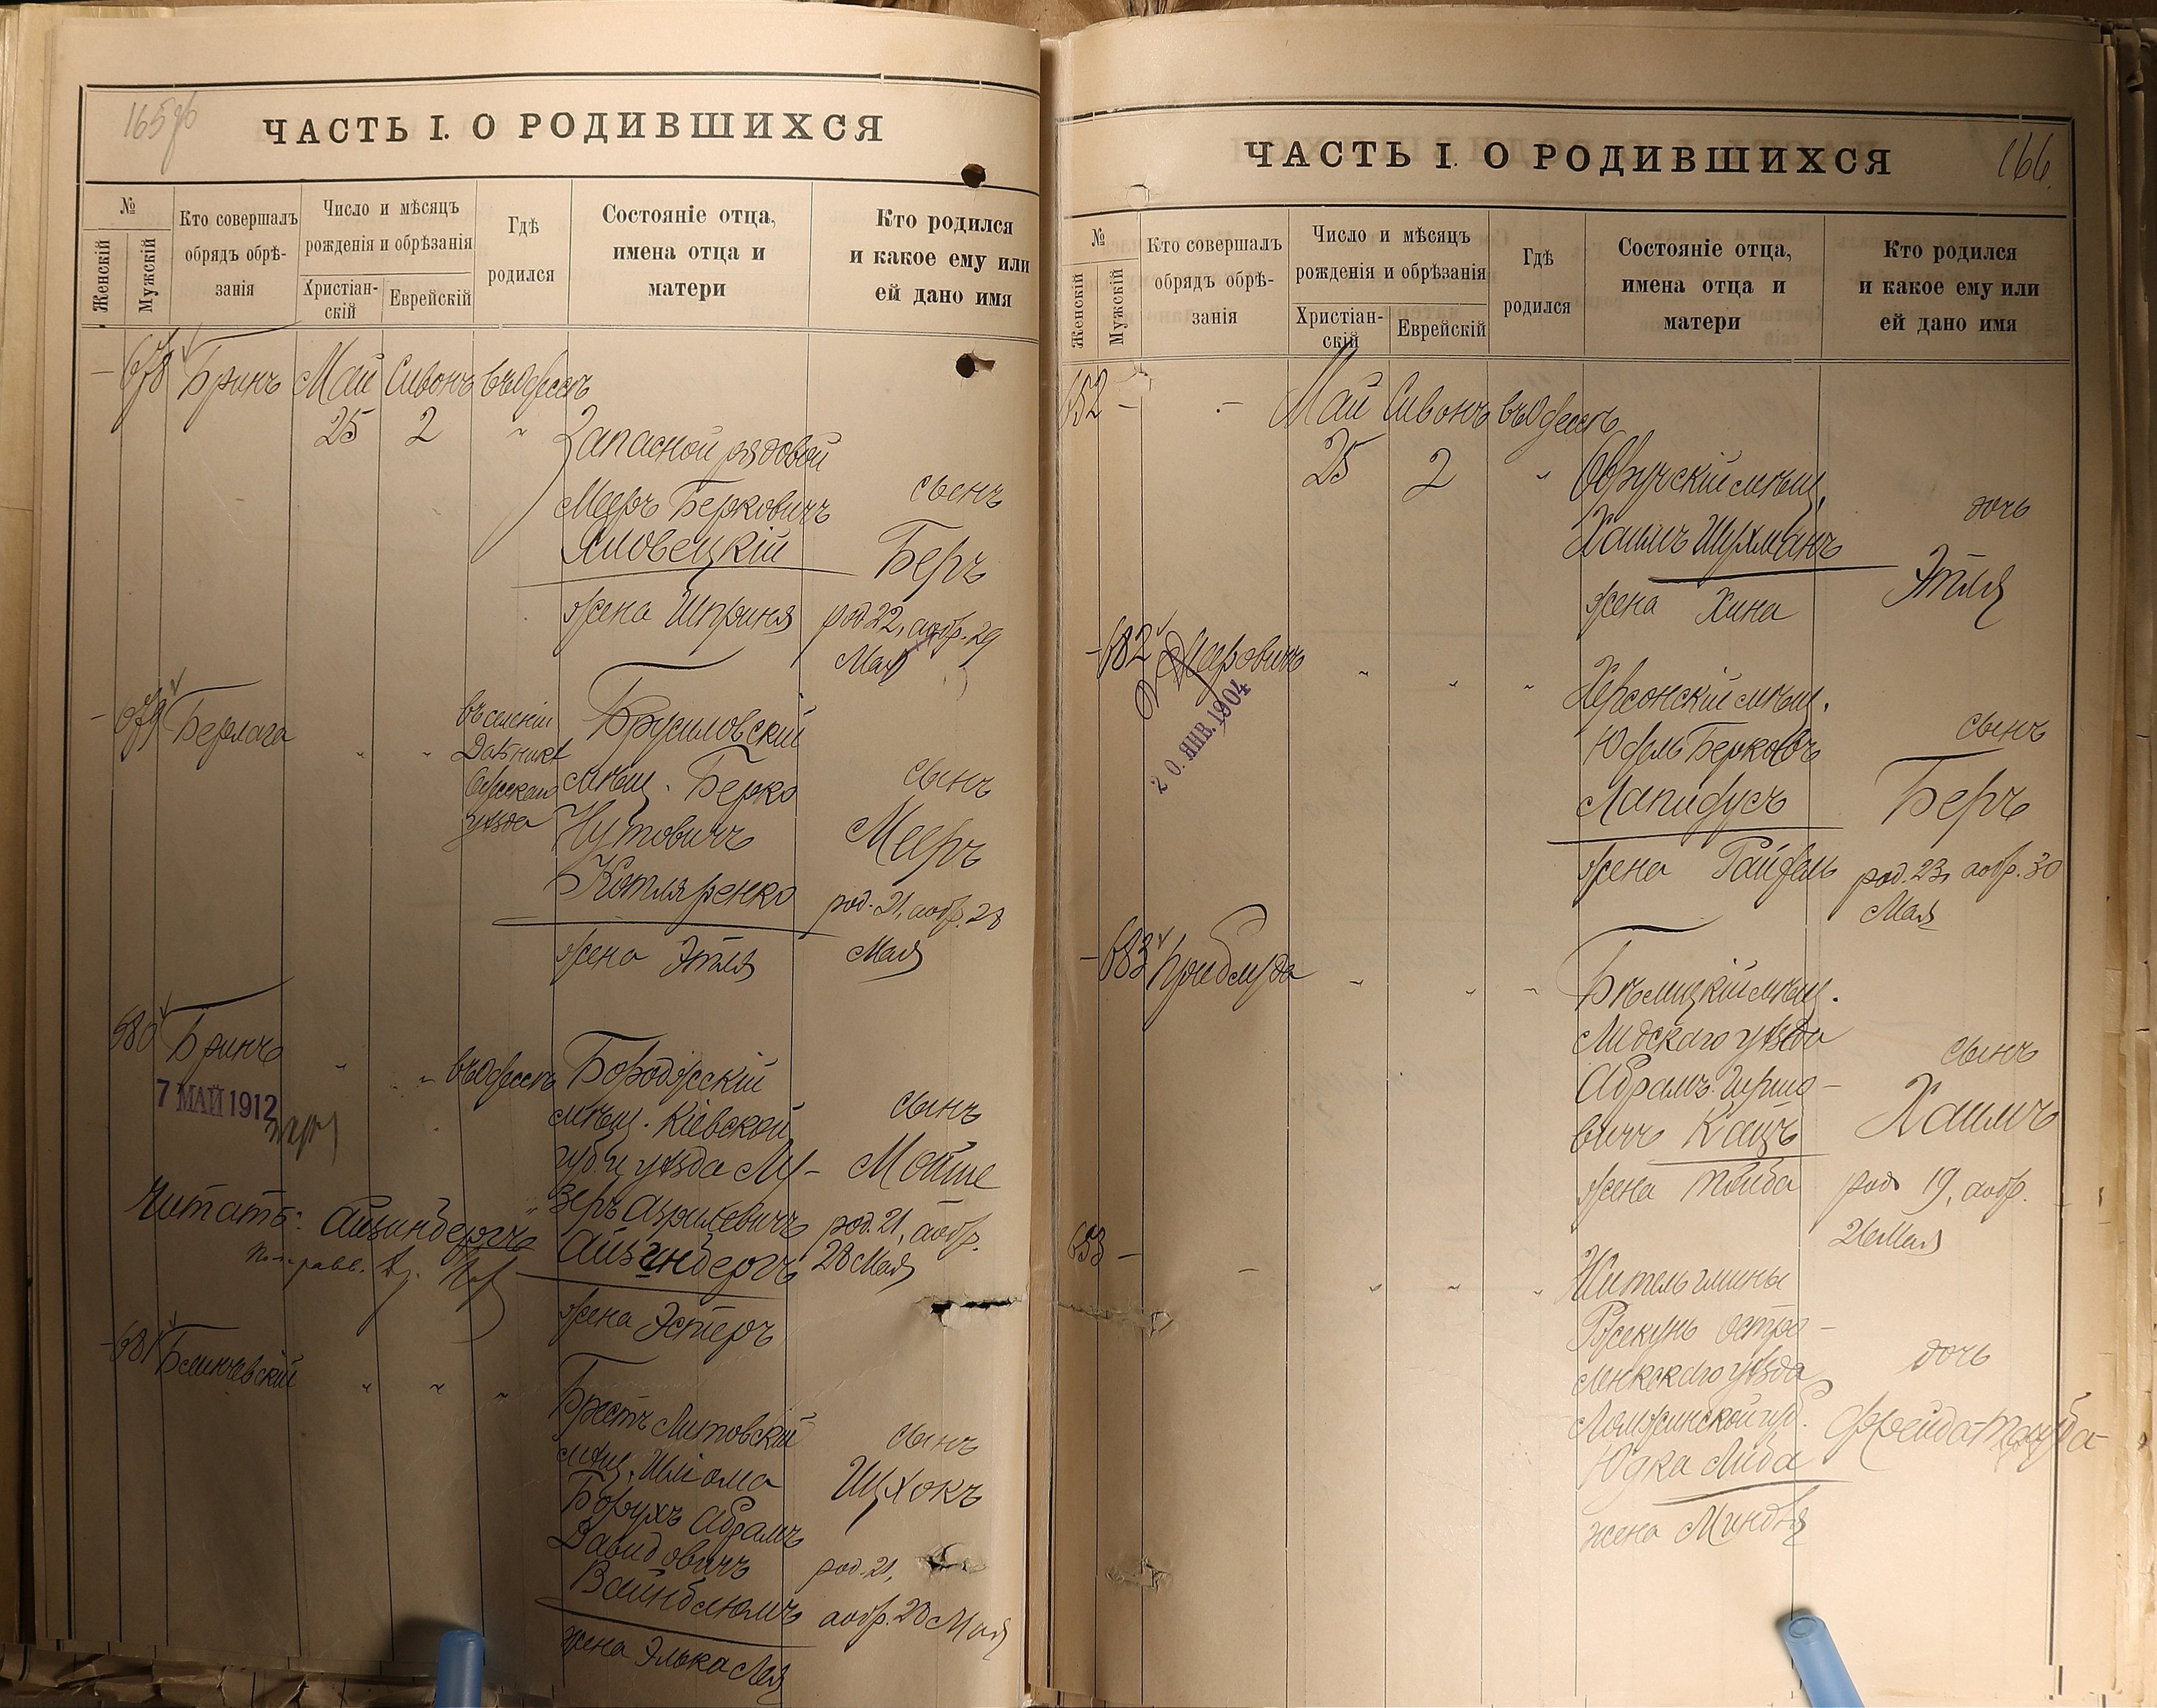 165об
ЧАСТЬ I. О РОДИВШИХСЯ
№
Женскій
Мужскій
Кто совершалъ
обрядъ обрѣ-
занія
Число и мѣсяцъ
рожденія и обрѣзанія
Христіан-
скій
Еврейскій
Гдѣ
родился
Состояніе отца,
имена отца и
матери
Кто родился
и какое ему или
ей дано имя
— 678 Бринъ Май Сивонъ въ Одессѣ
25 2 "
Запасной рядовой
Мееръ Берковичъ
Яловецкій
жена Шприня
сынъ
Беръ
род 22, а обр. 29
Мая
— 679 Берлага " "
въ селеніи
Дальникѣ
Одесскаго
уѣзда
Брусиловскій
мѣщ. Берко
Нутовичъ
Котляренко
жена Этля
сынъ
Мееръ
род. 21, а обр. 28
Мая
680 Бринъ " " въ Одессѣ
7 МАЙ 1912
Бородяскій
мѣщ. Кіевской
губ. и уѣзда Лу-
зеръ Азриловичъ
Айзинбергъ
жена Эстеръ
сынъ
Мойше
род. 21, а обр.
28 Мая
Читать: Айзинбергъ
— 681 Блинчевскій " " "
Брестъ Литовскій
мѣщ. Шліома
Борухъ Абрамъ
Давидовичъ
Вайнблюмъ
жена Элька Лея
сынъ
Ицхокъ
род. 21,
а обр. 28 Мая
166.
ЧАСТЬ I. О РОДИВШИХСЯ
№
Женскій
Мужскій
Кто совершалъ
обрядъ обрѣ-
занія
Число и мѣсяцъ
рожденія и обрѣзанія
Христіан-
скій
Еврейскій
Гдѣ
родился
Состояніе отца,
имена отца и
матери
Кто родился
и какое ему или
ей дано имя
652 — — Май Сивонъ въ Одессѣ
25 2 "
Овручскій мѣщ.
Хаимъ Шухманъ
жена Хина
дочь
Этля
— 682 Меровичъ " " "
20. ЯНВ. 1904
Херсонскій мѣщ.
Юдель Берковъ
Лапидусъ
жена Райдель
сынъ
Беръ
род. 23, а обр. 30
Мая
— 683 " " "
Бѣлицкій мѣщ.
Лидскаго уѣзда
Абрамъ Гиршо-
вичъ Кацъ
жена Тойба
сынъ
Хаимъ
род 19, а обр.
26 Мая
653 — — " " "
Житель гмины
Ржекунь Остро-
ленкскаго уѣзда
Ломжинской губ.
Юдка Либа
жена Миндля
дочь
Фрейда-Тауба